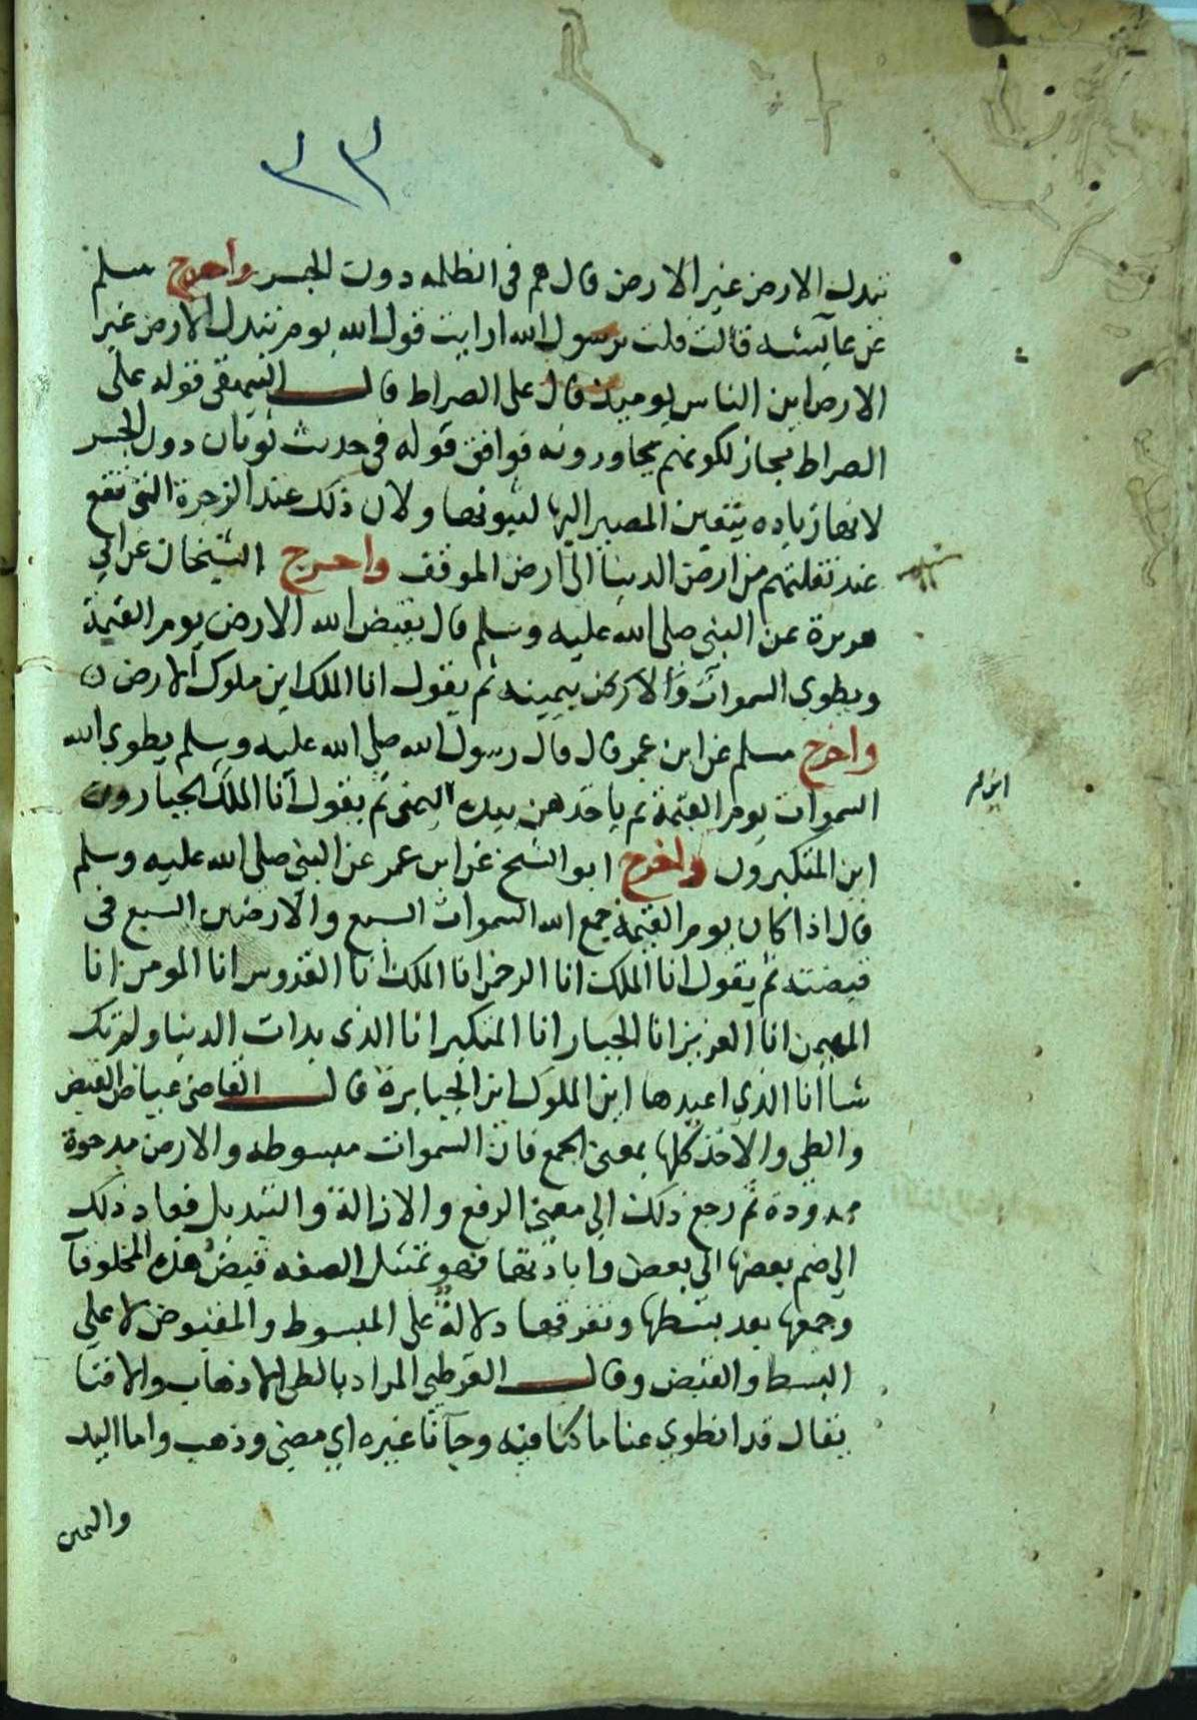 ٣٣
تبدل الارض غير الارض قال هم فى الظلمه دون الجسر واخرج مسلم
عن عايشه قالت قلت يرسول الله ارايت قول الله يوم تبدل الارض غير
الارض اين الناس يوميذ قال على الصراط قال البيهقى قوله على
الصراط مجاز لكونهم يجاورونه فوافق قوله فى حديث ثوبان دون الجسر
لانها زياده يتعين المصير اليها لثبوتها ولان ذلك عند الزجرة التى تقع
عند نقلتهم من ارض الدنيا الى ارض الموقف واخرج الشيخان عن ابي
هريرة عن النبى صلى الله عليه وسلم قال يقبض الله الارض يوم القيمة
ويطوى السموات بيمينه ثم يقول انا الملك اين ملوك الارض
واخرج مسلم عن ابن عمر قال قال رسول الله صلى الله عليه وسلم يطوى الله
السموات يوم القيمة ثم ياخذهن بيده اليمنى ثم يقول انا الملك الجبارون
اين المتكبرون واخرج ابو الشيخ عن ابن عمر عن النبى صلى الله عليه وسلم
قال اذا كان يوم القيمة جمع الله السموات السبع والارضين السبع فى
قبضته ثم يقول انا الملك انا الرحمن انا الملك انا القدوس انا المومن انا
المهيمن انا العزيز انا الجبار انا المتكبر انا الذى بدات الدنيا ولم تك
شيا انا الذى اعيدها اين الملوك اين الجبابرة قال القاضى عياض القبض
والطي والاخذ كلها بمعنى الجمع فان السموات مبسوطه والارض مدحوة
ممدودة ثم رجع ذلك الي معنى الرفع والازالة والتبديل فعاد ذلك
الي ضم بعضها الي بعض وابادتها فهو تمثيل لصفه قبض هذه المخلوقات
وجمعها بعد بسطها وتفرقها دلالة على المبسوط والمقبوض لا على
البسط والقبض وقال القرطبي المراد بالطى الاذهاب والافنا
يقال قد انطوي عنا ما كنا فيه وجآنا غيره اي مضى وذهب واما اليد
واليمين